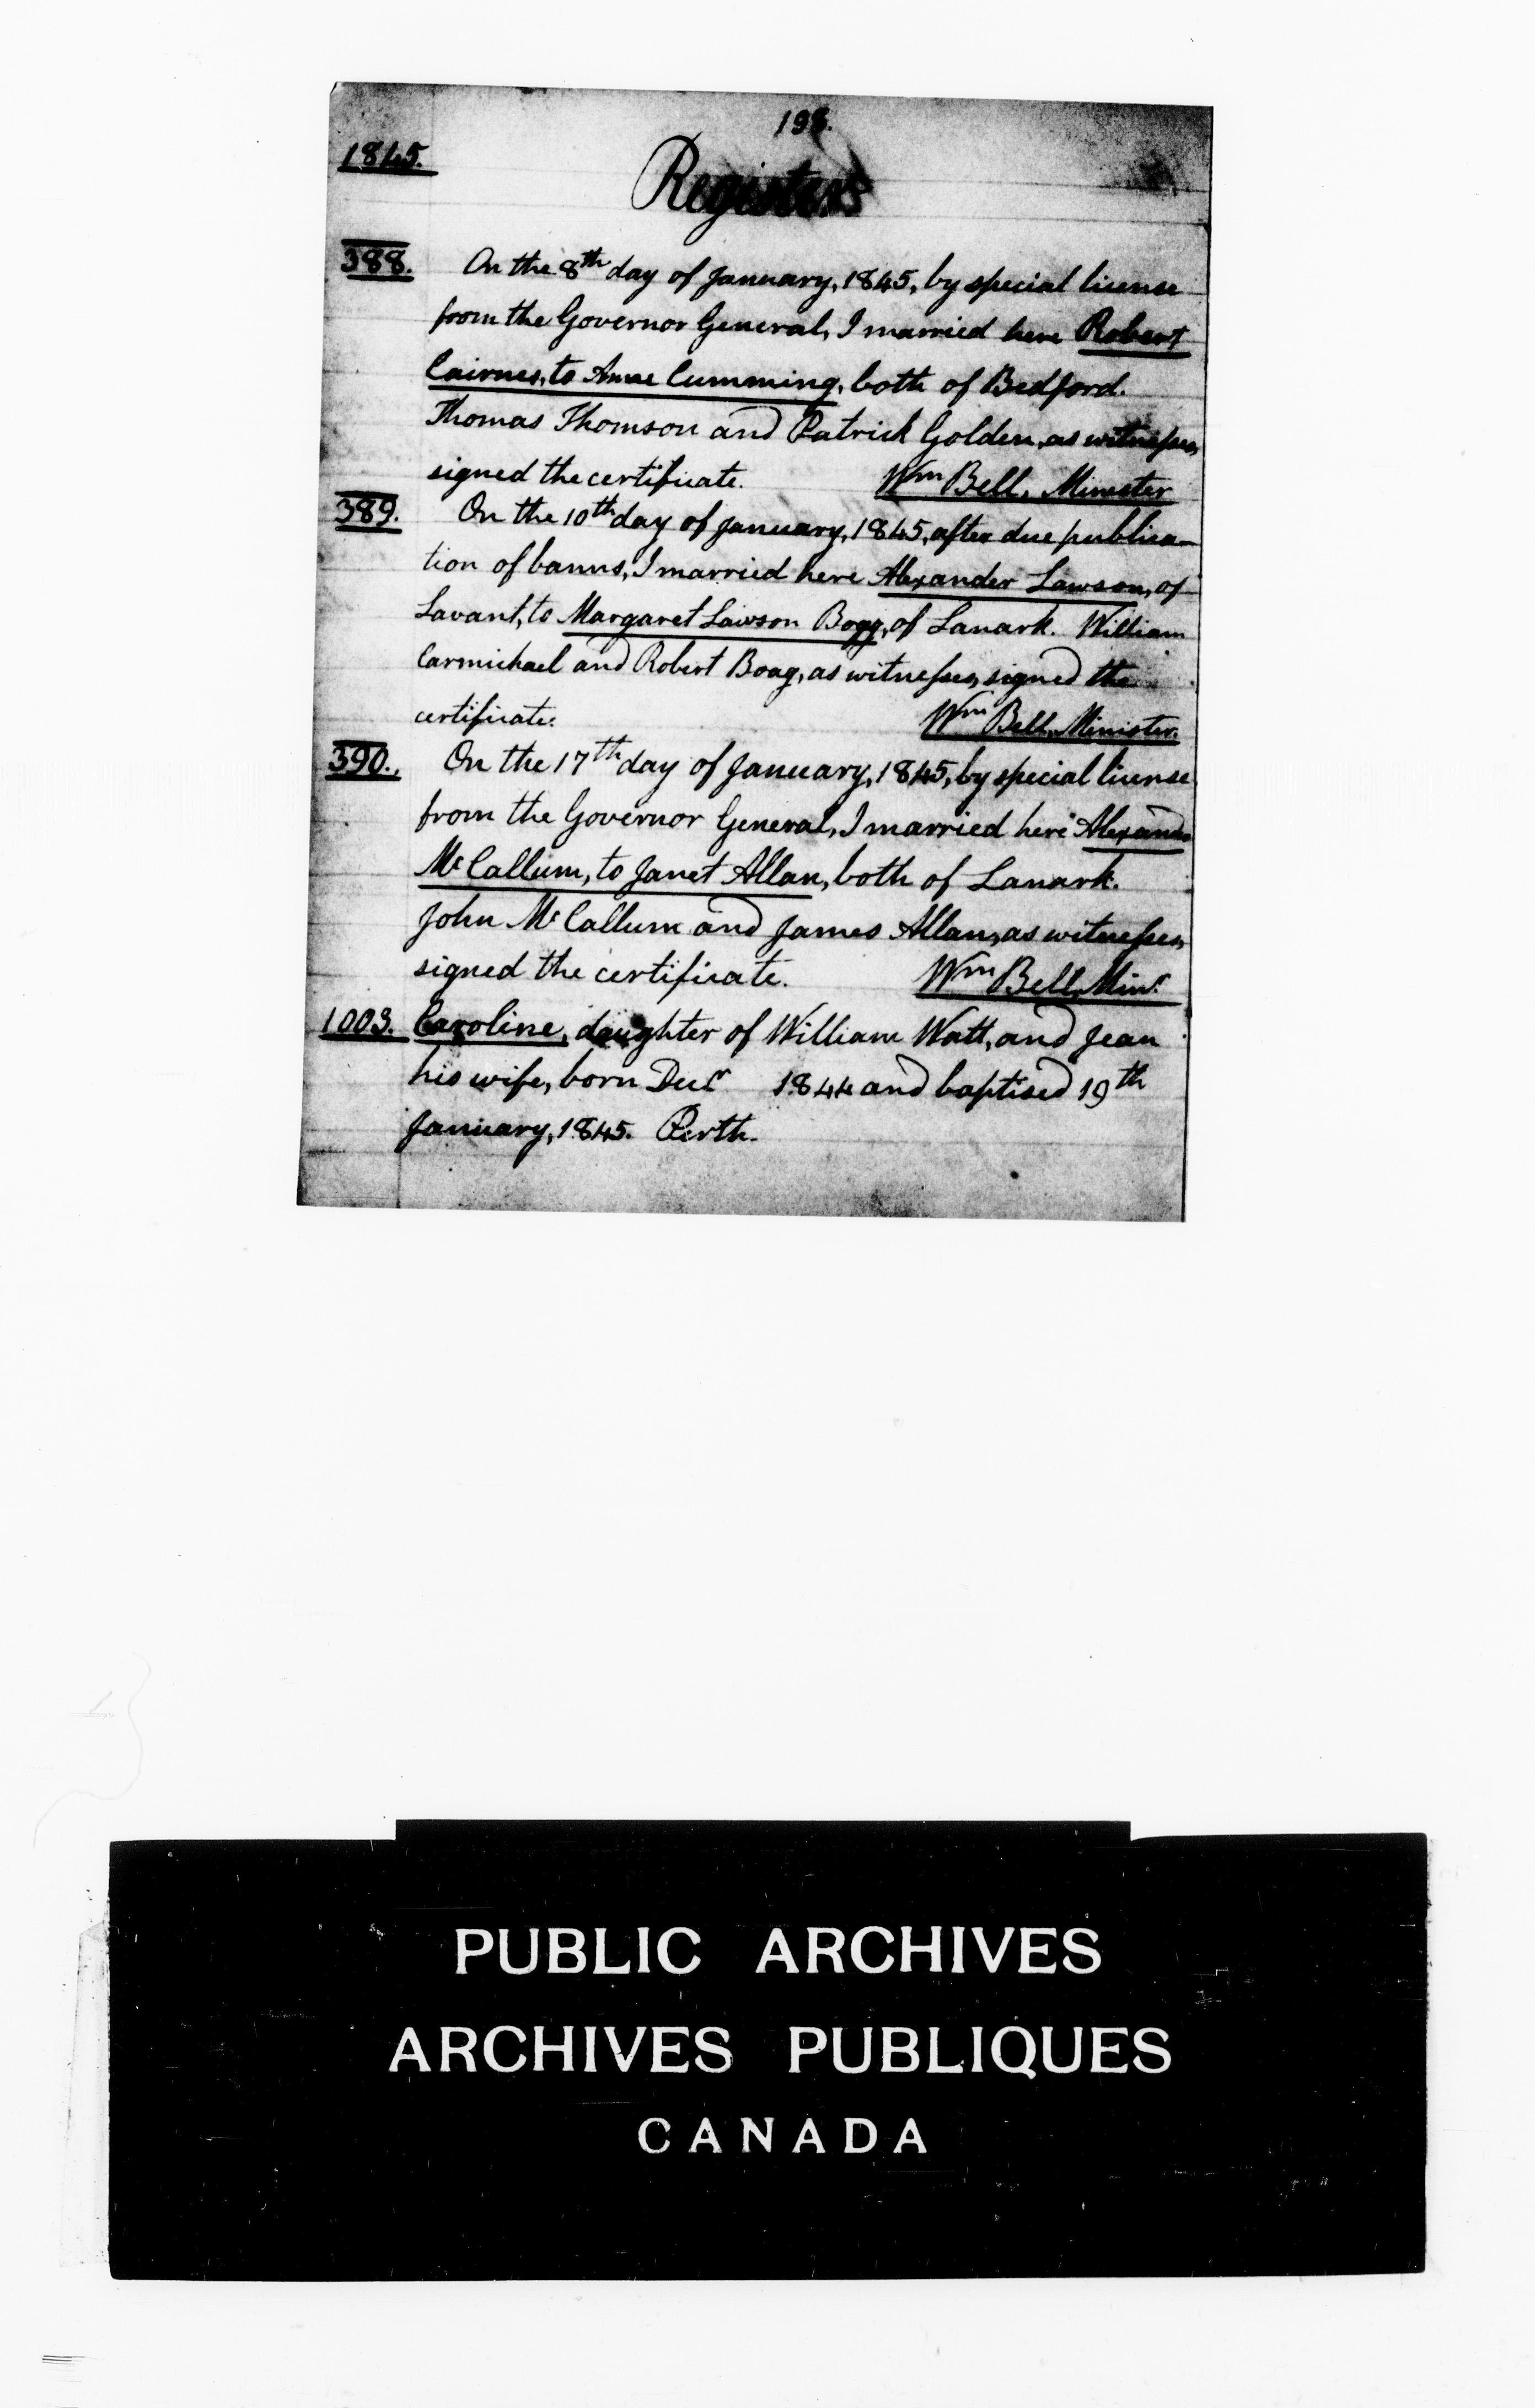 198.
1845.
Registers
388. On the 8th day of January, 1845, by special license
from the Governor General, I married here Robert
Cairnes, to Anne Cumming, both of Bedford.
Thomas Thomson and Patrick Golden, as witnesses,
signed the certificate. Wm Bell, Minister
389. On the 10th day of January, 1845, after due publica-
tion of banns, I married here Alexander Lawson, of
Lavant, to Margaret Lawson Bogg, of Lanark. William
Carmichael and Robert Boag, as witnesses, signed the
certificate. Wm Bell, Minister.
390. On the 17th day of January, 1845, by special license
from the Governor General, I married here Alexander
McCallum, to Janet Allan, both of Lanark.
John McCallum and James Allan, as witnesses,
signed the certificate. Wm Bell, Minr.
1003. Caroline, daughter of William Watt, and Jean
his wife, born Decr 1844 and baptised 19th
January, 1845. Perth.
PUBLIC ARCHIVES
ARCHIVES PUBLIQUES
CANADA